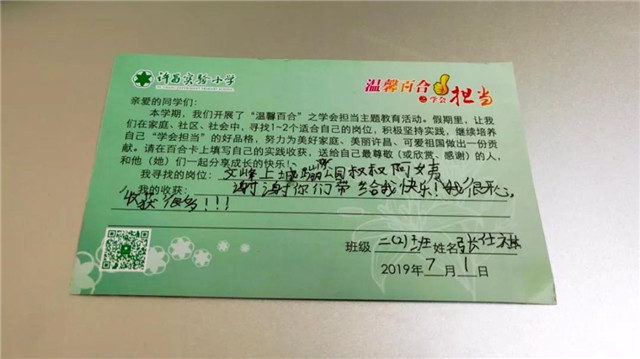 许昌实验小学
温馨百合
之学会 担当
亲爱的同学们：
本学期，我们开展了“温馨百合”之学会担当主题教育活动。假期里，让我
们在家庭、社区、社会中，寻找1-2个适合自己的岗位，积极坚持实践，继续培养
自己“学会担当”的好品格，努力为美好家庭、美丽许昌、可爱祖国做出一份贡
献。请在百合卡上填写自己的实践收获，送给自己最尊敬（或欣赏、感谢）的人，
和他（她）们一起分享成长的快乐！
我寻找的岗位 文峰上城 公园叔叔阿姨
我的收获： 谢谢你们带给我快乐！我很开心，
收获很多！！！
班级 二(2)班 姓名 张仕
2019年 7 月 1 日